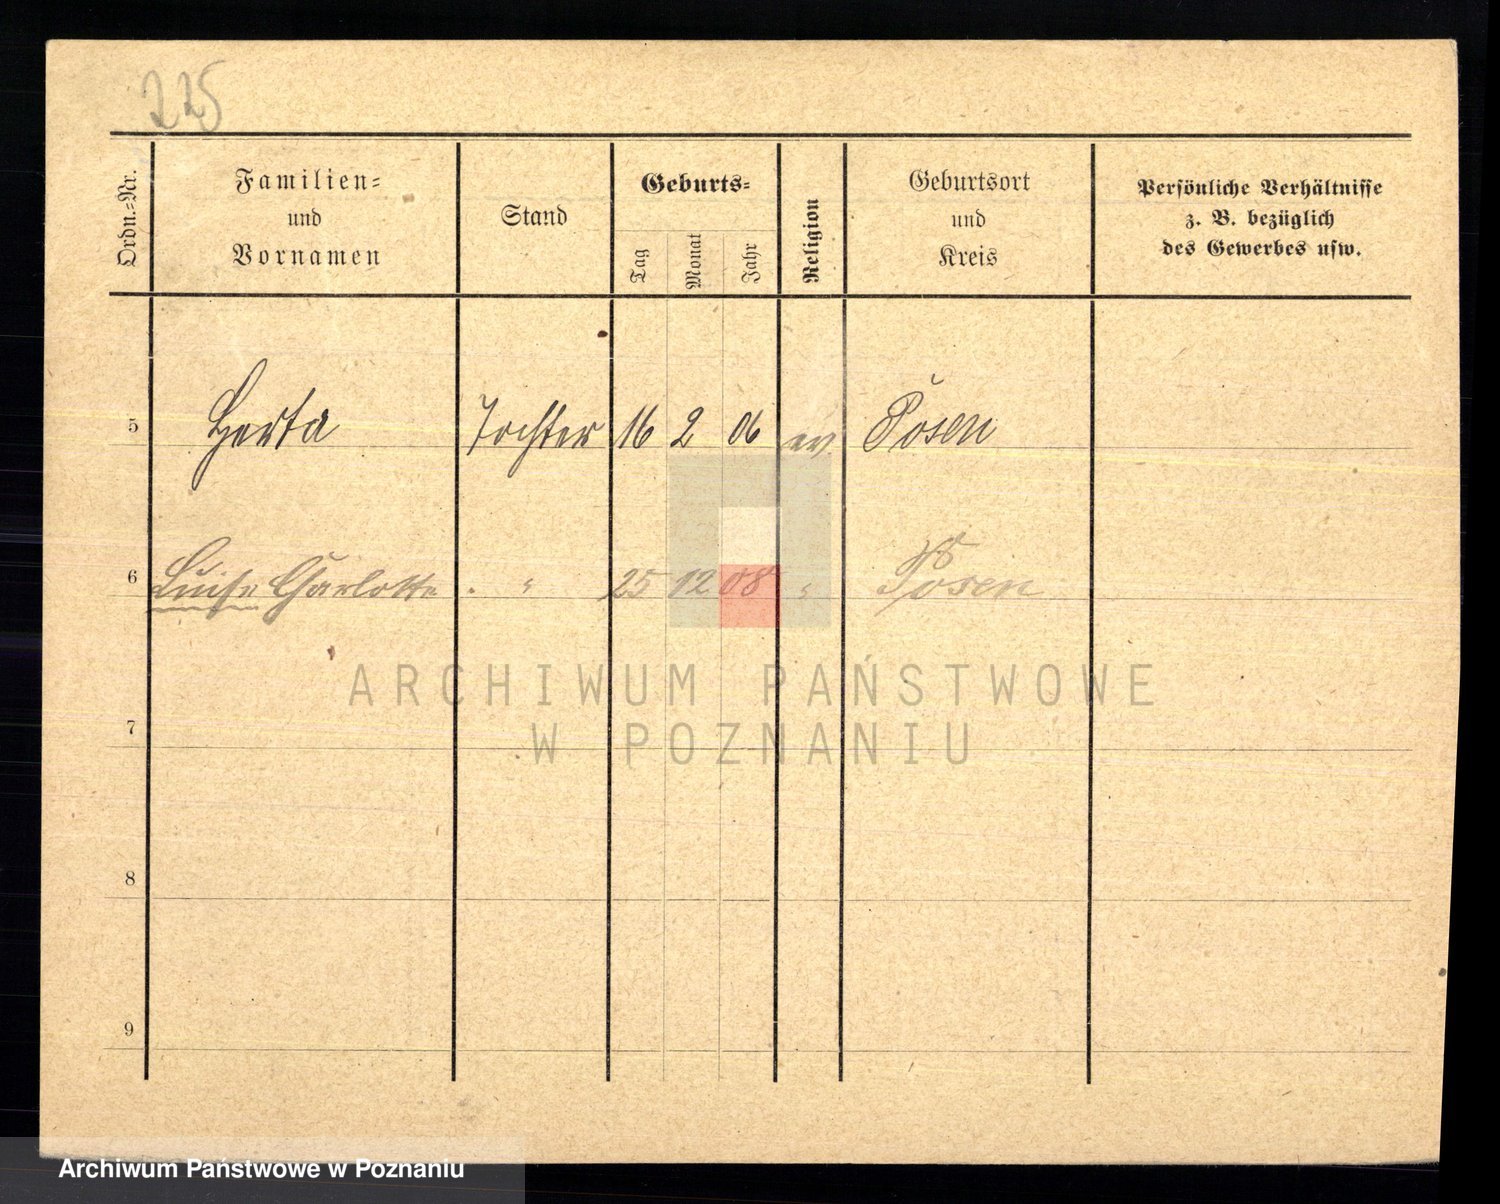 225
Ordn.-Nr.
Familien-
und
Vornamen
Stand
Geburts-
Tag
Monat
Jahr
Religion
Geburtsort
und
Kreis
Persönliche Verhältnisse
z. B. bezüglich
des Gewerbes usw.
5 Herta Tochter 16 2 06 ev Posen
6 Luise Charlotte . " 25 12 08 " Posen
ARCHIWUM PAŃSTWOWE
W POZNANIU
7
8
9
Archiwum Państwowe w Poznaniu